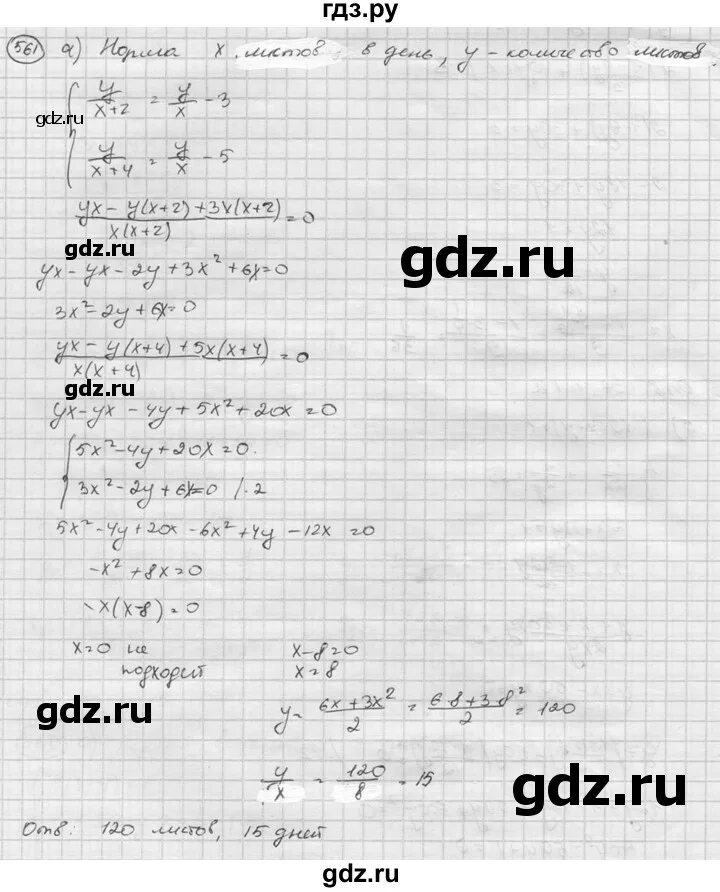 гдз.ру
561 а) Норма x листов в день, y - количество листов.
y/(x+2) = y/x - 3
gdz.ru
y/(x+4) = y/x - 5
(yx - y(x+2) + 3x(x+2))/(x(x+2)) = 0
gdz.ru
gdz.ru
yx - yx - 2y + 3x² + 6x = 0
3x² - 2y + 6x = 0
(yx - y(x+4) + 5x(x+4))/(x(x+4)) = 0
gdz.ru
yx - yx - 4y + 5x² + 20x = 0
5x² - 4y + 20x = 0.
3x² - 2y + 6x = 0 |·2
gdz.ru
5x² - 4y + 20x - 6x² + 4y - 12x = 0
-x² + 8x = 0
-x(x-8) = 0
x=0 не подходит
x-8=0
x=8
gdz.ru
y = (6x+3x²)/2 = (6·8+3·8²)/2 = 120
y/x = 120/8 = 15
gdz.ru
Отв: 120 листов, 15 дней
gdz.ru